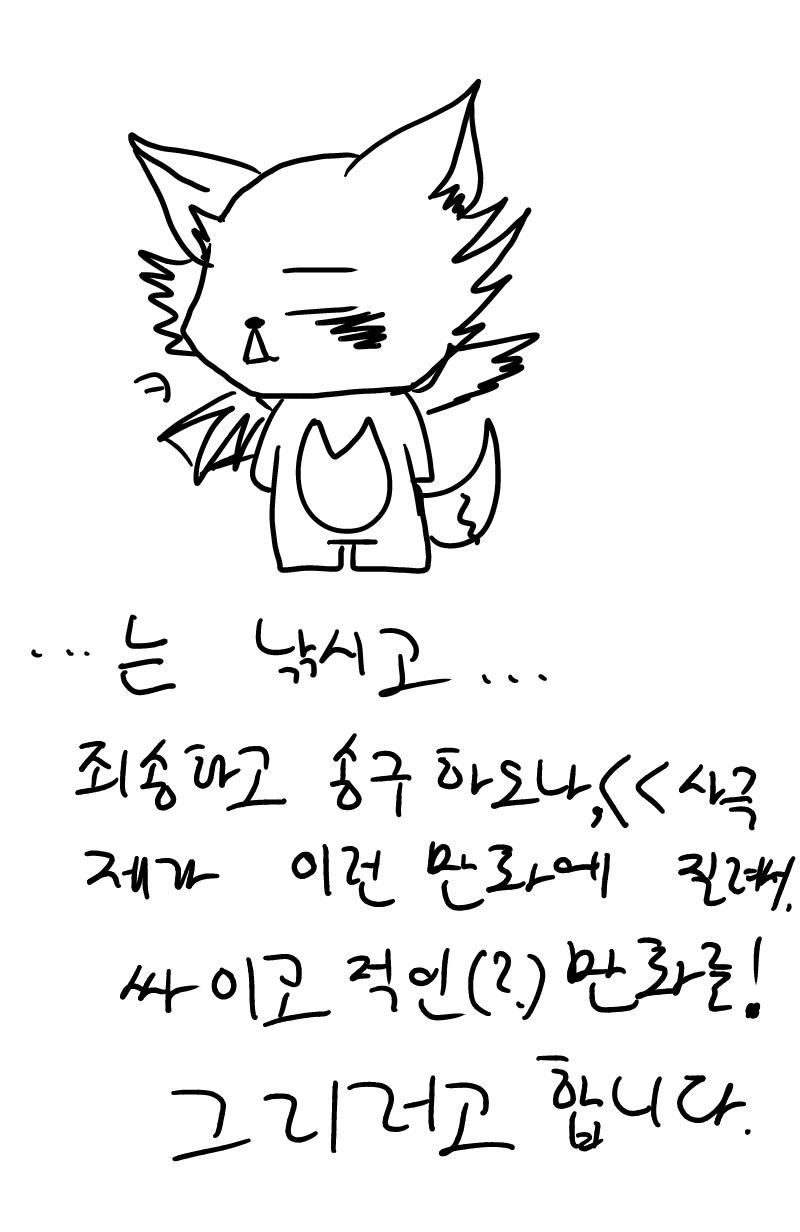 ㅋ
...는 낚시고...
죄송하고 송구 하도나,<< 사극
제가 이런 만화에 질려서.
싸이고 적인(?) 만화를!
그리려고 합니다.